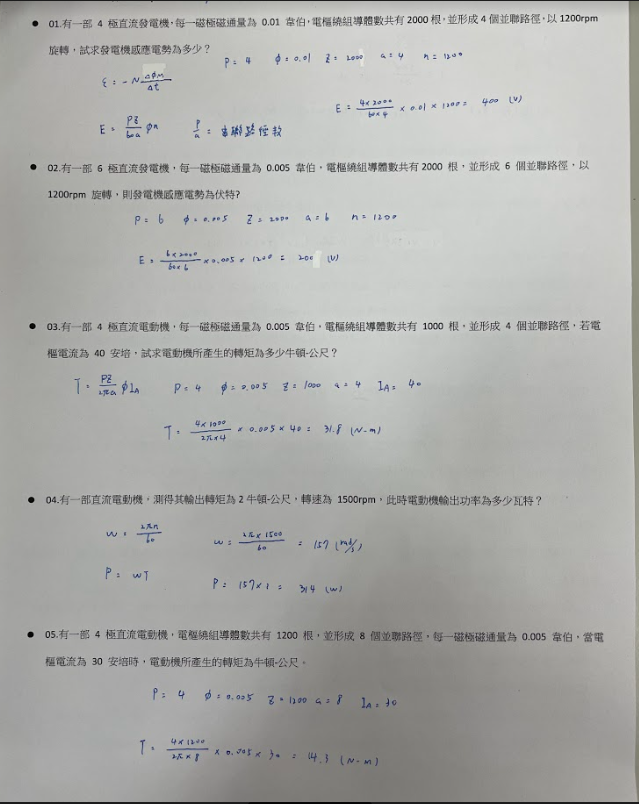 ● 01.有一部 4 極直流發電機，每一磁極磁通量為 0.01 韋伯，電樞繞組導體數共有 2000 根，並形成 4 個並聯路徑，以 1200rpm
旋轉，試求發電機感應電勢為多少？
P = 4 φ = 0.01 Z = 2000 a = 4 n = 1200
ε = -N ΔφM/Δt
E = 4×2000/60×4 × 0.01 × 1200 = 400 (V)
E = PZ/60a φn P/a = 串聯路徑數
● 02.有一部 6 極直流發電機，每一磁極磁通量為 0.005 韋伯，電樞繞組導體數共有 2000 根，並形成 6 個並聯路徑，以
1200rpm 旋轉，則發電機感應電勢為伏特?
P = 6 φ = 0.005 Z = 2000 a = 6 n = 1200
E = 6×2000/60×6 × 0.005 × 1200 = 200 (V)
● 03.有一部 4 極直流電動機，每一磁極磁通量為 0.005 韋伯，電樞繞組導體數共有 1000 根，並形成 4 個並聯路徑，若電
樞電流為 40 安培，試求電動機所產生的轉矩為多少牛頓-公尺？
T = PZ/2πa φIA P = 4 φ = 0.005 Z = 1000 a = 4 IA = 40
T = 4×1000/2π×4 × 0.005 × 40 = 31.8 (N-m)
● 04.有一部直流電動機，測得其輸出轉矩為 2 牛頓-公尺，轉速為 1500rpm，此時電動機輸出功率為多少瓦特？
ω = 2πn/60 ω = 2π×1500/60 = 157 (rad/s)
P = ωT P = 157×1 = 314 (W)
● 05.有一部 4 極直流電動機，電樞繞組導體數共有 1200 根，並形成 8 個並聯路徑，每一磁極磁通量為 0.005 韋伯，當電
樞電流為 30 安培時，電動機所產生的轉矩為牛頓-公尺。
P = 4 φ = 0.005 Z = 1200 a = 8 IA = 30
T = 4×1200/2π×8 × 0.005 × 30 = 14.3 (N-m)